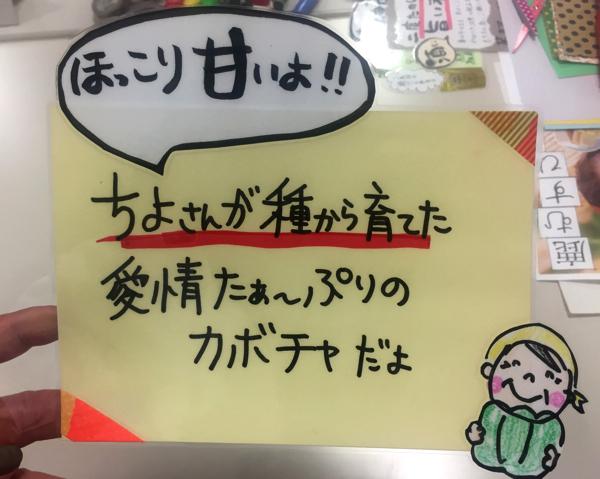 ほっこり甘いよ!!
ちよさんが種から育てた
愛情たぁ〜っぷりの
カボチャだよ
鹿むすて